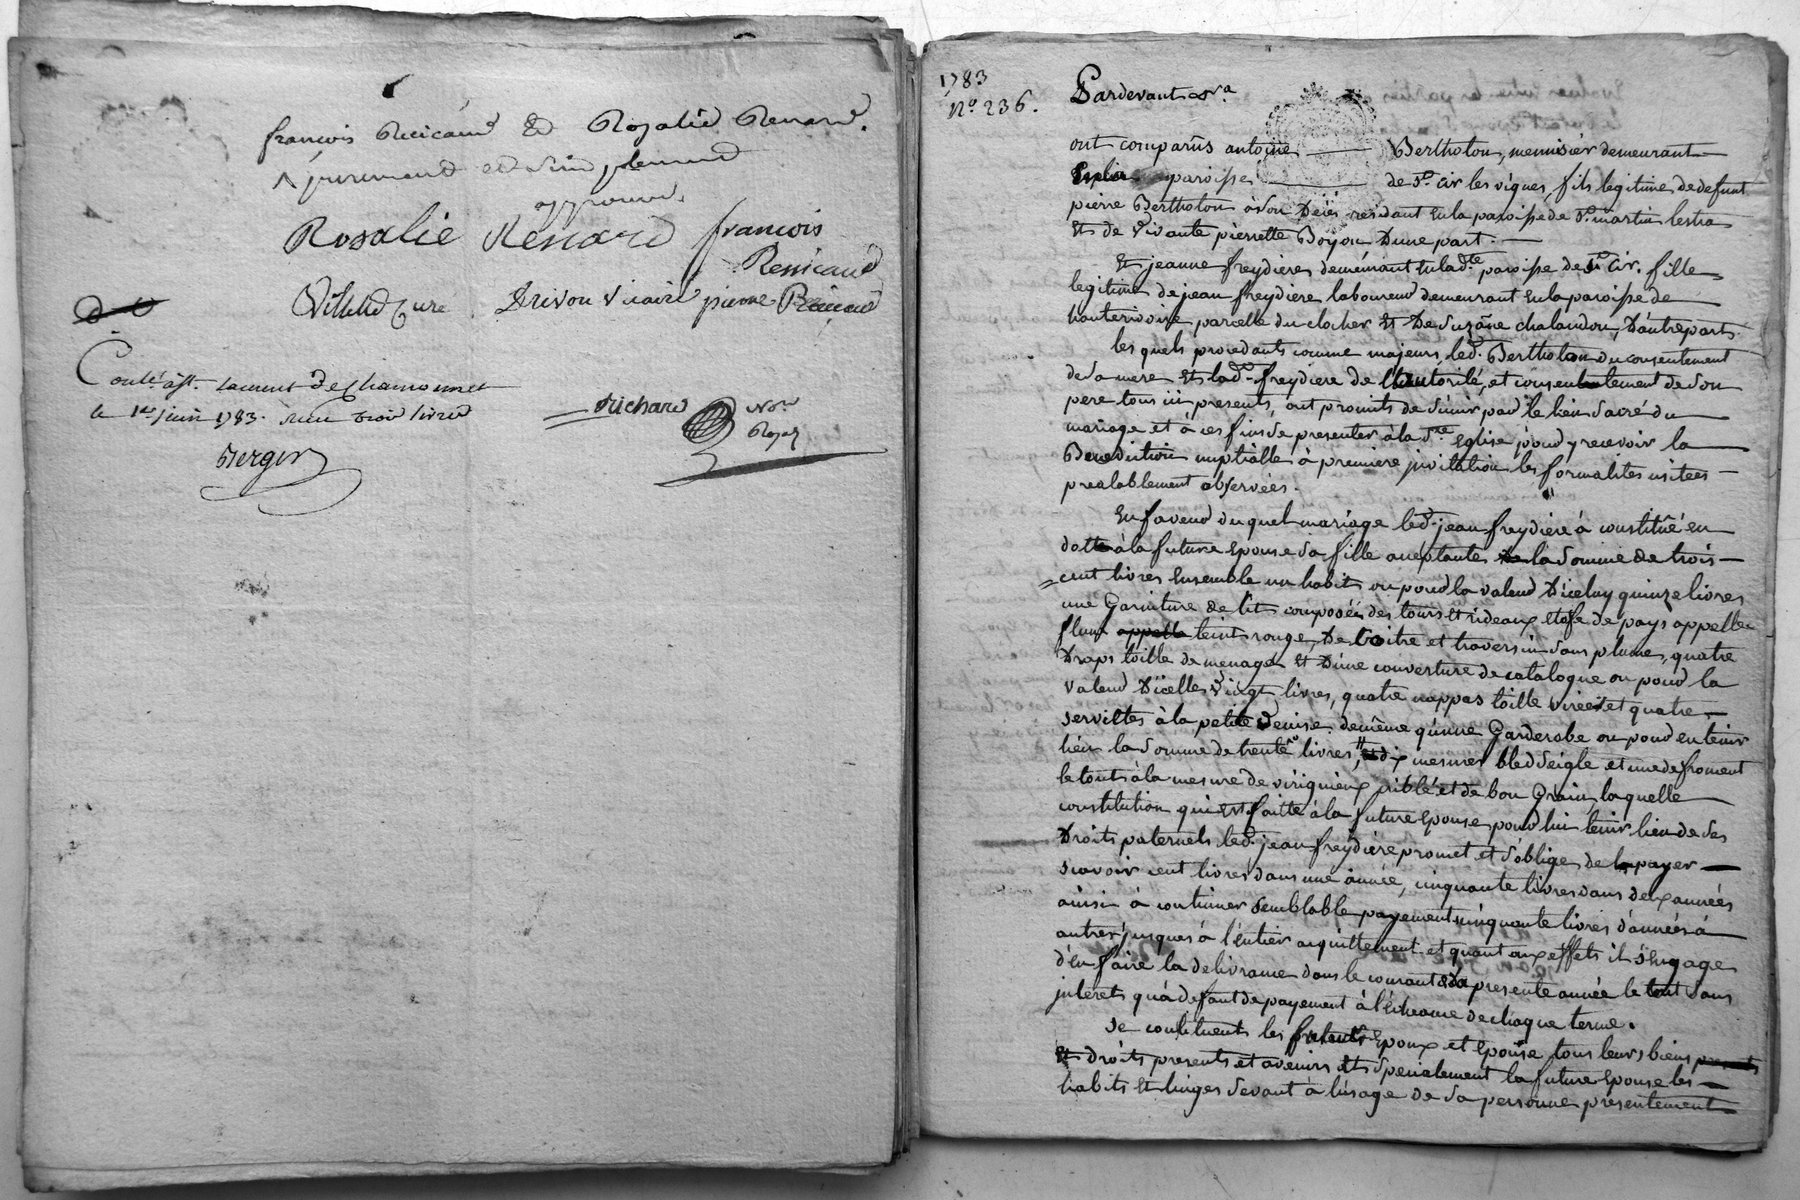 françois Ressicaud et Rosalie Renard.
purement et simplement
approuvé.
Rosalie Renard françois
Ressicaud
Vitted Curé Drivon vicaire pierre
Conlé à St. Laurent de Chamousset
le 1er juin 1783. reçu trois livres
Berger
Richard Nore
Royal
1783
No. 236.
Pardevant &ra
ont comparûs antoine Bertholon, menuisier demeurant
en la paroisse de St. Cir les vignes, fils legitime de defunt
pierre Bertholon à son Deces residant en la paroisse de St. martin lestra
Et de vivante pierrette Boyon D'une part.
Et jeanne freydiere demeurant en lad.te paroisse de St. Cir. fille
legitime de jean freydiere laboureur demeurant en la paroisse de
hauterivoire, parcelle du clocher Et De Suzãne chalandon, D'autre part.
les quels procedants comme majeurs, led. Bertholon du consentement
de sa mere Et lad. freydiere de l'hautorité, et consentement de son
pere tous ici presents, ont promits de s'unir par le lien sacré du
mariage et à ces fins se presenter à la Ste Eglise pour y recevoir la
Benediction nuptialle à premiere jnvitation les formalités usitées
prealablement observées.
En faveur du quel mariage led. jean freydiere à constitûé en
dotte à la future Epouse sa fille aceptante la somme de trois
cent livres Ensemble un habit ou pour la valeur D'iceluy quinze livres
une Garniture de lit composée des tours et rideaux etofe de pays appellée
fleur appellé teint rouge, De Coitre et traversin sans plume, quatre
Draps toille de menage Et D'une couverture de catalogne ou pour la
valeur D'icelles vingt livres, quatre nappas toille virée et quatre
serviettes à la petite Venise. de même qu'une Garderobe ou pour en tenir
lieu la somme de trente livres, dix mesures bled seigle et une de froment
le tout à la mesure de virignieux criblé et de bon Grain laquelle
constitution qui est faitte à la future Epouse pour lui tenir lieu de ses
Droits paternels led. jean freydiére promet et s'oblige de payer
scavoir cent livres dans une année, cinquante livres dans deux années
ainsi à continuer semblable payement cinquante livres d'années à
autres jusques à l'entier acquittement et quant aux effets il s'engage
d'en faire la delivrance dans le courant de la presente année le tout sans
jnterets qu'à defaut de payement à l'écheance de chaque terme.
se contituent les futeurs Epoux et Epouse tous leurs biens presents
Et droits presents et avenirs Et specialement la future Epouse les
habits Et linges servant à l'usage de sa personne presentement